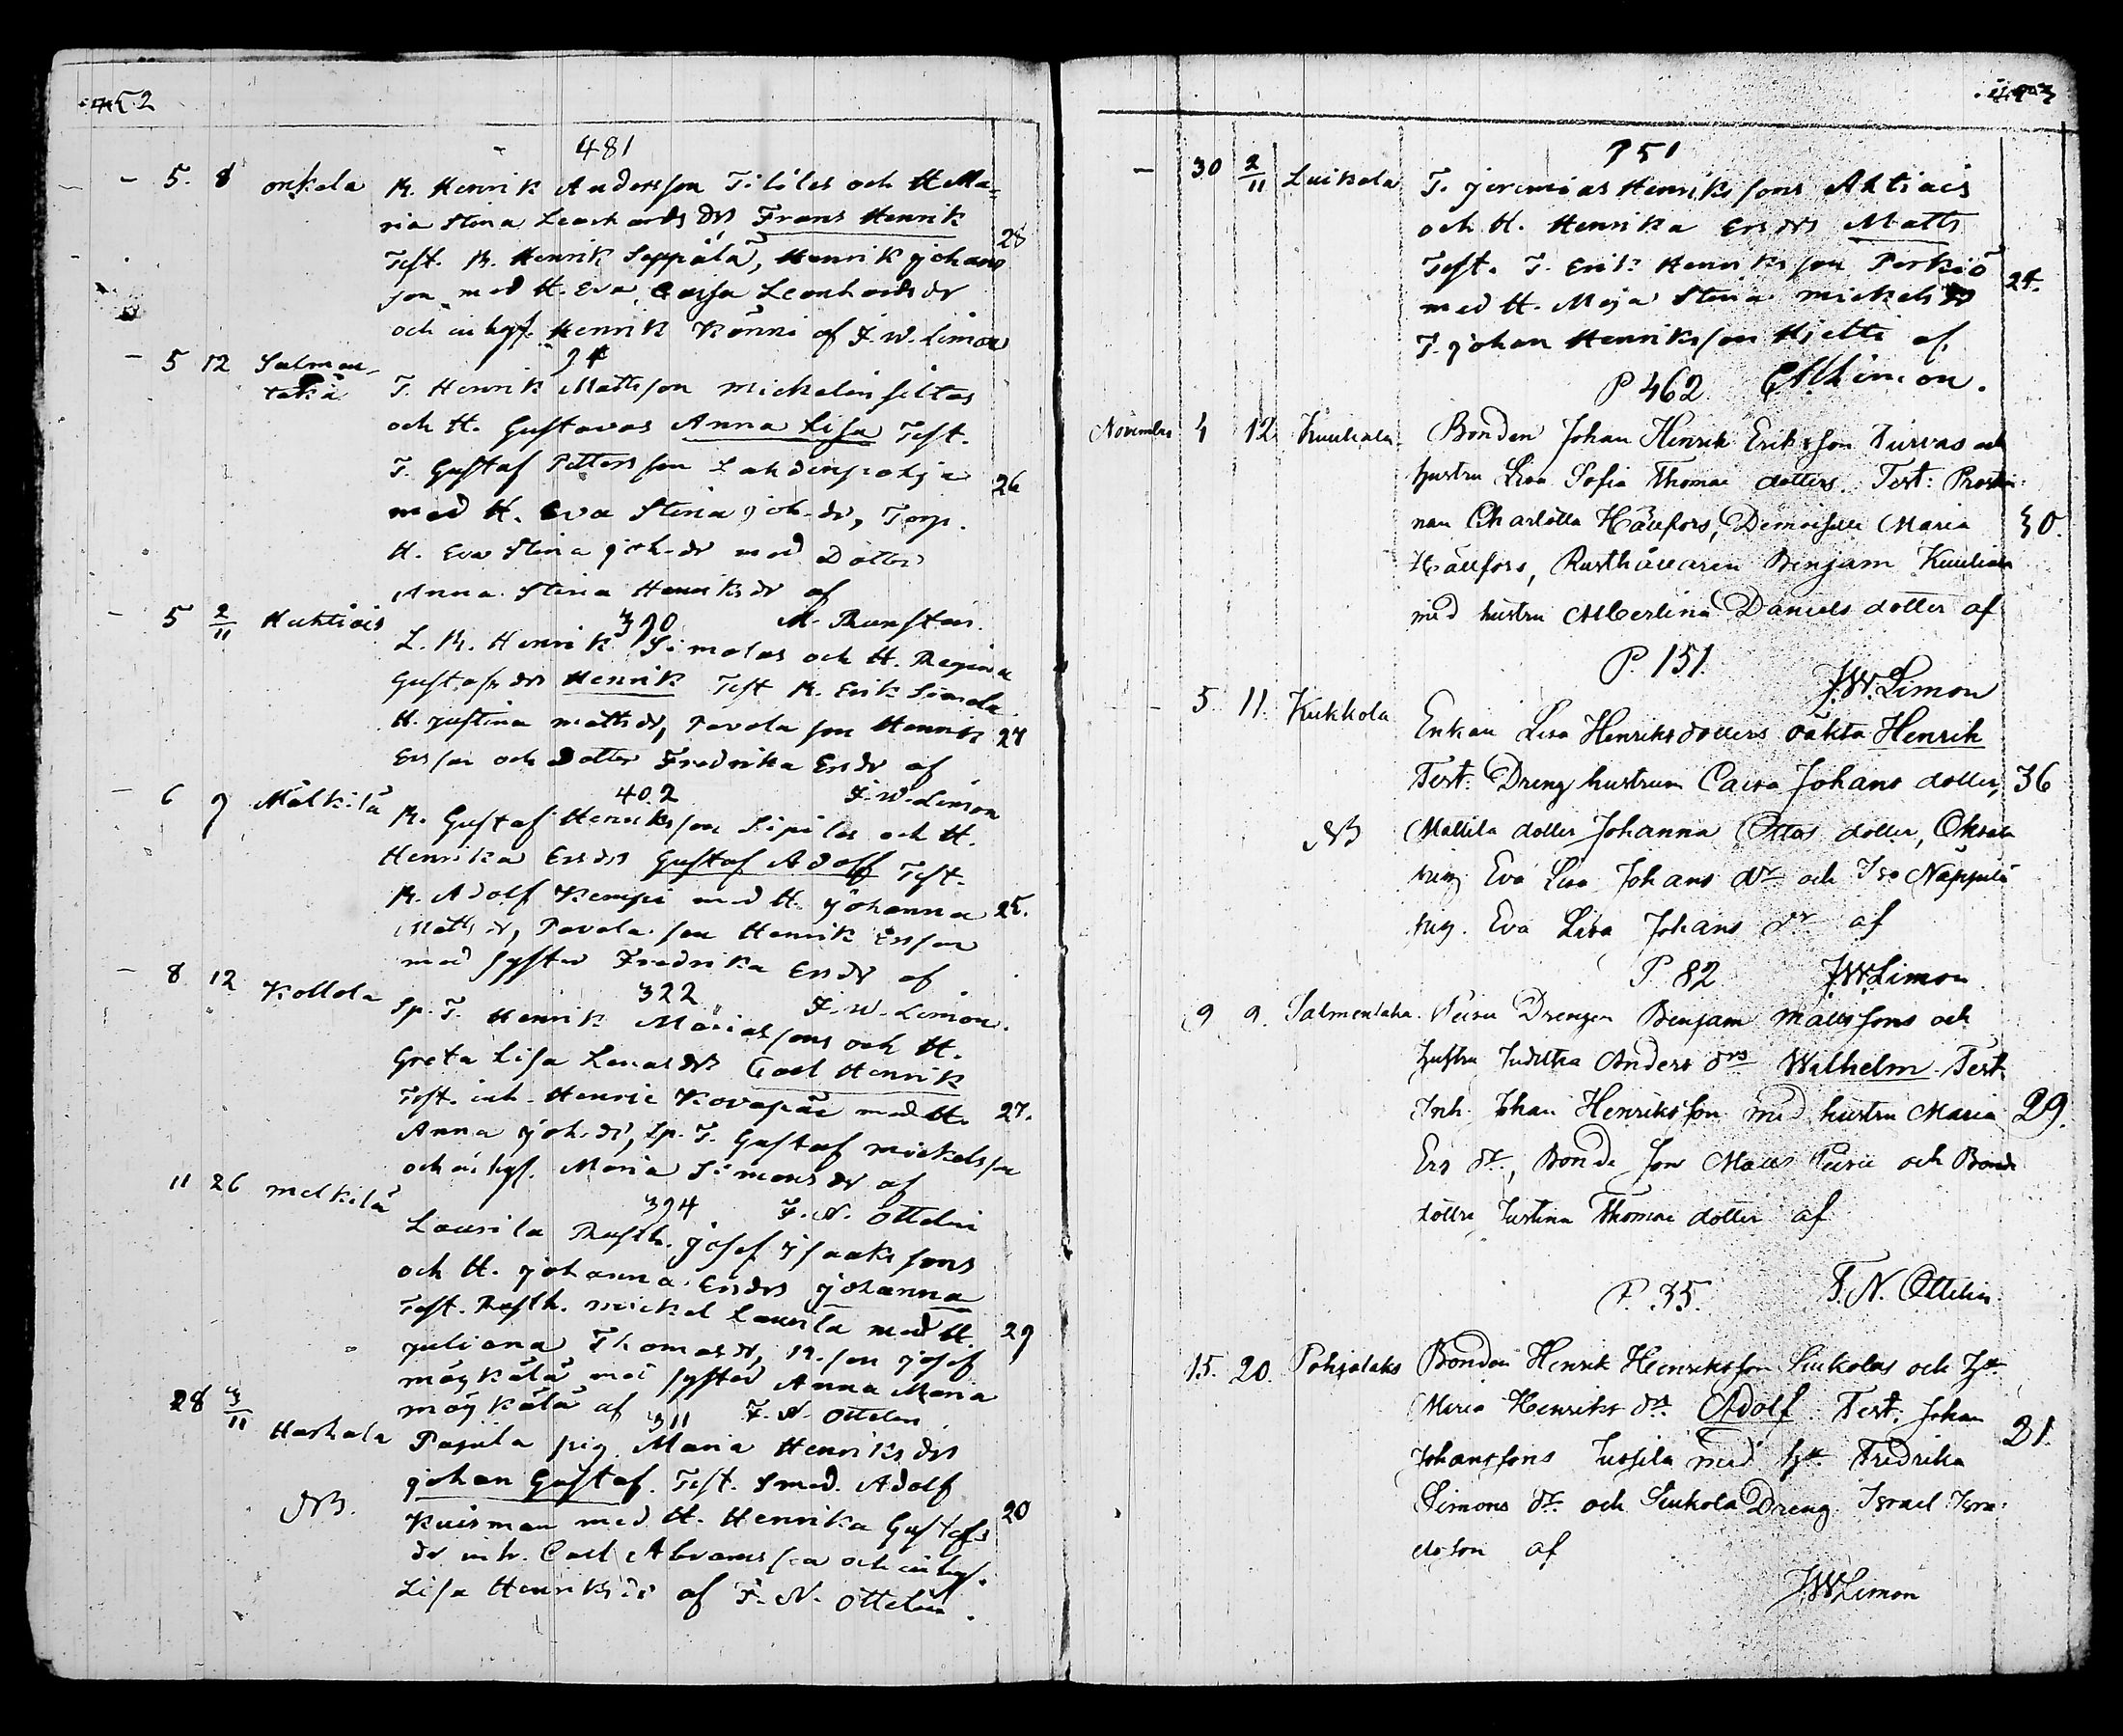 481
5. 8 onkola B. Henrik Andersson Tililes och H Ma=
ria Stina Leonhards drs Frans Henrik
Test. B. Henrik Seppälä, Henrik Johans
son med H. Eva Caisa Leonhards dr 28
och inhys. Henrik Könni af F. W. Limon
5 12 Salmen-
taka T. Henrik Mattsson Mickelinsiltas
och H. Gustavas Anna Lisa Test.
T. Gustaf Pettersson Lahdenpohja 26
med H. Eva Stina Joh. dr, Torp.
H. Eva Stina Joh. dr med Dotter
Anna Stina Henriks dr af
390 M. Runsten.
5 2/11 Huhtiais L. B. Henrik Simolas och H. Regina
Gustafs drs Henrik Test B. Erik Simola
H. Justina Matts dr, Pavola son Henrik 27
Ersson och Dotter Fredrika Ers dr af
402 F. W. Limon
6 9 Mälkilä B. Gustaf Henriksson Sipiles och H.
Henrika Ers drs Gustaf Adolf Test.
B. Adolf Kemppi med H. Johanna 25.
Matts dr, Pavola son Henrik Ersson
med syster Fredrika Ers dr af
322 F. W. Limon.
8 12 Kollola Sp. T. Henrik Mariassons och H.
Greta Lisa Lenas drs Carl Henrik
Test. inh. Henric Kovapää med H. 27.
Anna Joh. dr, Sp. T. Gustaf Mickelsson
och inhys. Maria Simons dr af
394 F. N. Ottelin
11 26 melkilä Laurila Rusth. Josef Isaakssons
och H. Johanna Ers drs Johanna
Test. Rusth. Mickel Laurila med H. 29
Juliana Thomas dr, B. son Josef
mäykälä med syster Anna Maria
mäykälä af F. N. Ottelin
311
28 3/11 Harhala Papula pig. Maria Henriks drs
Johan Gustaf. Test. Smed. Adolf
NB. Kuisman med H. Henrika Gustafs 20
dr inh. Carl Abramsson och inhys.
Lisa Henriks dr af F. N. Ottelin.
P 51
30 2/11 Luikala T. Jeremias Henrikssons Ahtiais
och H. Henrika Ers drs Matts
Test. T. Erik Henriksson Perkiö 24.
med H. Maja Stina Mickels dr
T. Johan Henriksson Hjelte af
P 462 Limon.
November 4 12 Kuuliala Bonden Johan Henrik Eriksson Turvas och
hustru Lisa Sofia Thomas dotters. Test: Prostin-
nan Charlotta Hällfors, Demoiselle Maria 30.
Hällfors, Rusthållaren Benjam Kuuliala
med hustru Albertina Daniels dotter af
P. 151. J. W. Limon
5 11. Kukkola Enkan Lisa Henriksdotters oäkta Henrik
Test: Dreng hustrun Caisa Johans dotter, 36
NB Mattila dotter Johanna Ottas dotter,
pig Eva Lisa Johans dr och Iso Näppilä
pig. Eva Lisa Johans dr af
P. 82 J. W. Limon
9 9. Salmentaka Peiru Drengen Benjam Mattssons och
hustru Juditha Anders drs Wilhelm. Test.
Inh. Johan Henriksson med hustru Maria 29.
Ers dr., Bonde son Matts Peiru och Bonde
dottre Justina Thomas dotter af
P. 35. F. N. Ottelin.
15. 20. Pohjalaks Bonden Henrik Henriksson Siukolas och Hu
Maria Henriks drs. Adolf. Test. Johan
Johanssons Jussila med hu. Fredrika 21.
Simons dr. och Siukola Dreng. Israel Isra-
elsson af
J. W. Limon